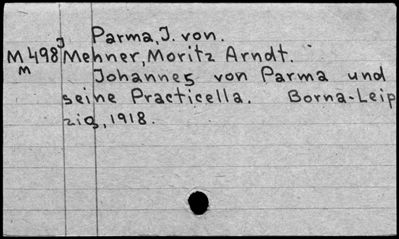 Parma, J. von.
M498J Mehner, Moritz Arndt.
m
Johannes von Parma und
seine Practicella. Borna-Leip
zig, 1918.